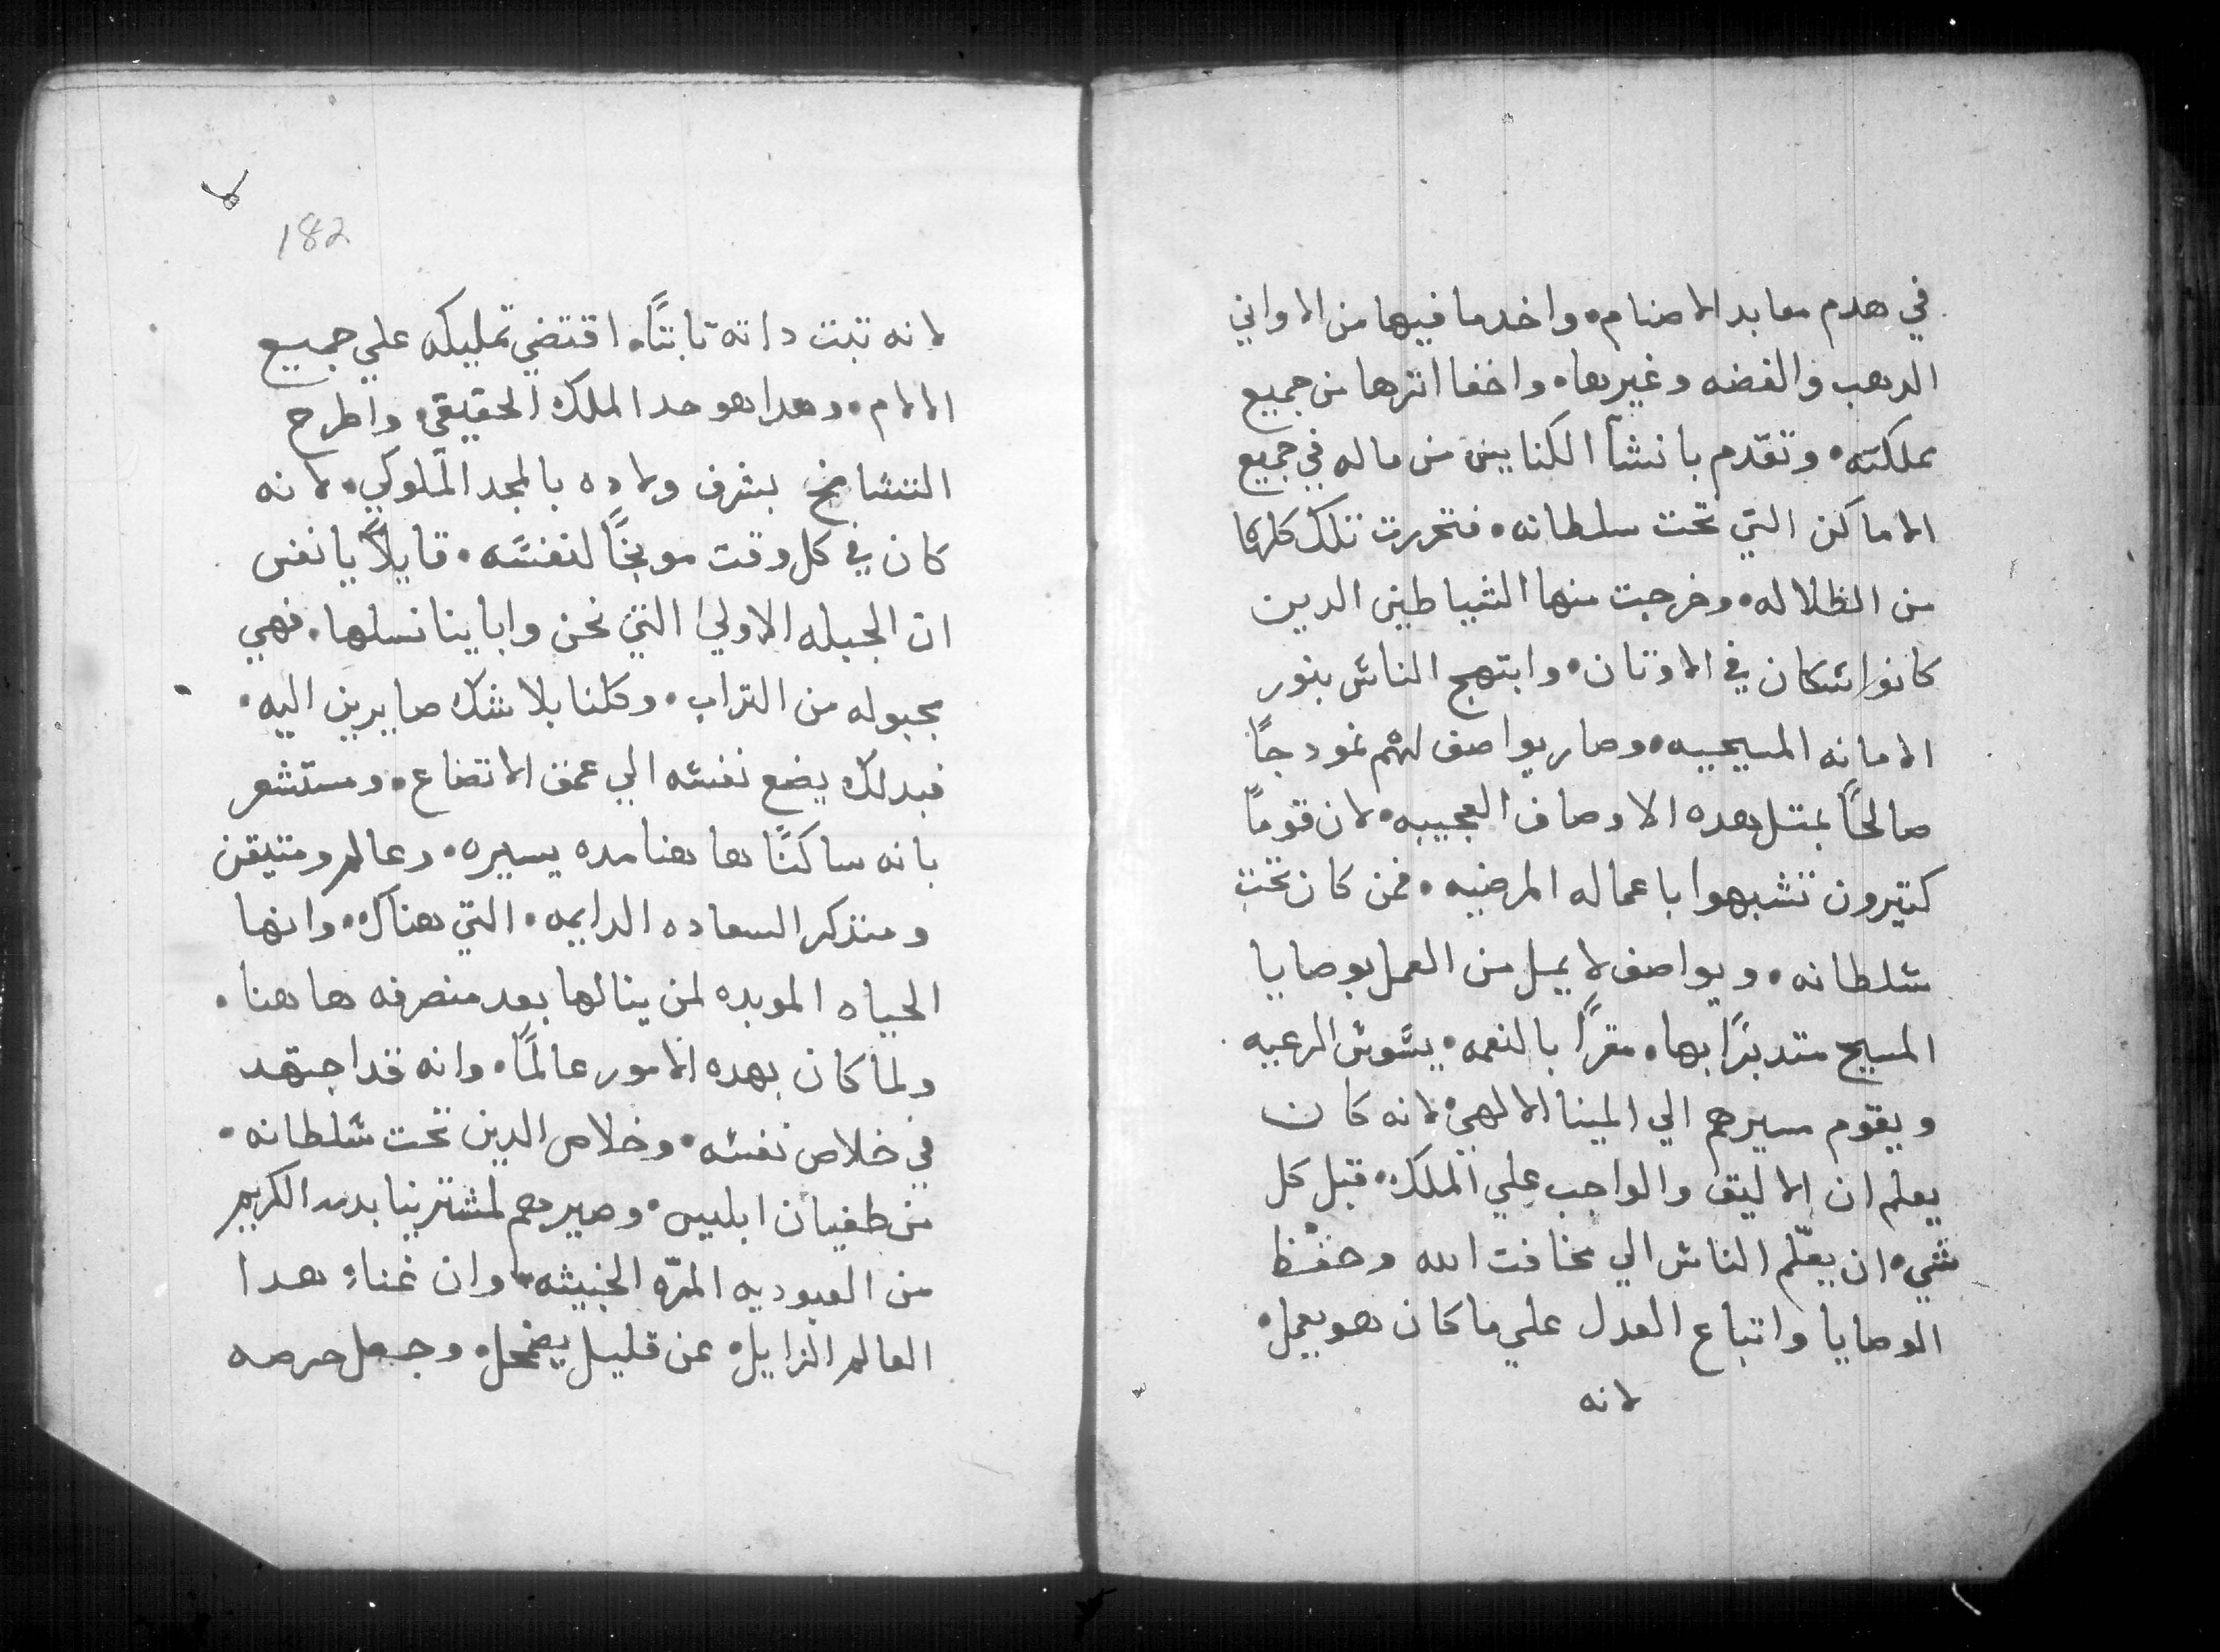 في هدم معابد الاصنام. واخد ما فيها من الاواني
الدهب والفضه وغيرها. واخفا اترها من جميع
مملكته. وتقدم بانشآ الكنايس من ماله في جميع
الاماكن التي تحت سلطانه. فتحررت تلك كلها
من الظلاله. وخرجت منها الشياطين الدين
كانوا سكان في الاوتان. وابتهج الناس بنور
الامانه المسيحيه. وصار يواصف لهم نمودجاً
صالحاً بمتل هده الاوصاف العجيبه. لان قوماً
كتيرون تشبهوا باعماله المرضيه. فمن كان تحت
سلطانه. ويواصف لا يمل من العمل بوصايا
المسيح متدبرًا بها. مقرًا بالنعمه. يسوس الرعيه
ويقوم سيرهم الي المينا الالهي. لانه كان
يعلم ان الاليق والواجب علي الملك. قبل كل
شيء ان يعلّم الناس الي مخافت الله وحفظ
الوصايا واتباع العدل علي ما كان هو يعمل.
لانه
182
لانه تبت داته تابتًا. اقتضي تمليكه علي جميع
الالام. وهدا هو حد الملك الحقيقي. واطرح
التشامخ بشرف ولاده بالمجد الملوكي. لانه
كان في كل وقت موبخًا لنفسه. قايلاً يا نفس
ان الجبله الاولي التي نحن واباينا نسلها. فهي
مجبوله من التراب. وكلنا بلا شك صايرين اليه.
فبدلك يضع نفسه الي عمق الاتضاع. ومستشعر
بانه ساكنًا ها هنا مده يسيره. وعالم ومتيقن
ومتذكر السعاده الدايمه. التي هناك. وانها
الحياه الموبده لمن ينالها بعد منصرفه ها هنا.
ولما كان بهده الامور عالمًا. وانه قد اجتهد
في خلاص نفسه. وخلاص الدين تحت سلطانه.
من طغيان ابليس. وصيرهم لمشترينا بدمه الكريم
من العبوديه المرّه الخبيثه. وان غناء هدا
العالم الزايل. عن قليل يضمحل. وجعل حرصه